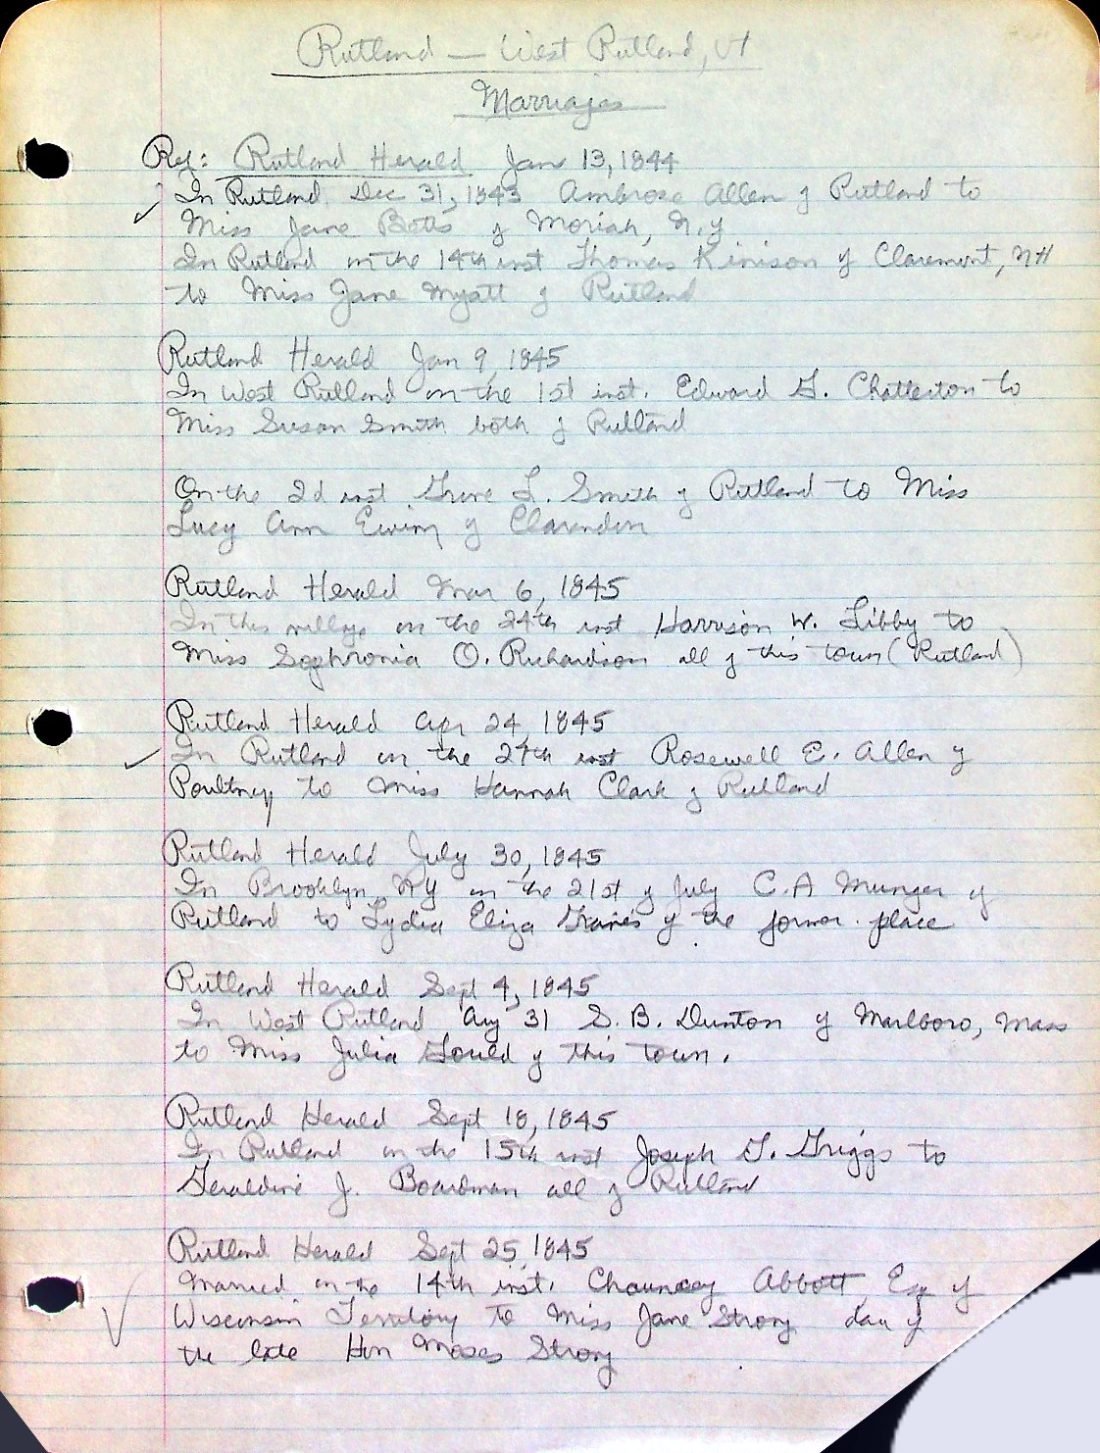 Rutland — West Rutland, Vt
Marriages
Ref: Rutland Herald Jan 13, 1844
In Rutland Dec 31, 1843 Ambrose Allen of Rutland to
Miss Jane Betts of Moriah, N.Y
In Rutland on the 14th inst Thomas Kinison of Claremont, NH
to Miss Jane Myatt of Rutland
Rutland Herald Jan 9, 1845
In West Rutland on the 1st inst. Edward G. Chatterton to
Miss Susan Smith both of Rutland
On the 2d inst L. Smith of Rutland to Miss
Lucy Ann Ewing of Clarendon
Rutland Herald Mar 6, 1845
In this village on the 24th inst Harrison W. Libby to
Miss Sophronia O. Richardson all of this town (Rutland)
Rutland Herald Apr 24, 1845
In Rutland on the inst Rosewell E. Allen of
Poultney to Miss Hannah Clark of Rutland
Rutland Herald July 30, 1845
In Brooklyn, NY on the 21st of July C. A Munger of
Rutland to Lydia Eliza of the former place
Rutland Herald Sept 4, 1845
In West Rutland Aug 31 S. B. Dunton of Marlboro, Mass
to Miss Julia Gould of this town.
Rutland Herald Sept 18, 1845
In Rutland on the 15th inst Joseph G. Griggs to
Geraldine J. Boardman all of Rutland
Rutland Herald Sept 25, 1845
Married on the 14th inst. Chauncey Abbott, Esq of
Wisconsin Territory to Miss Jane Strong dau of
the late Hon Moses Strong